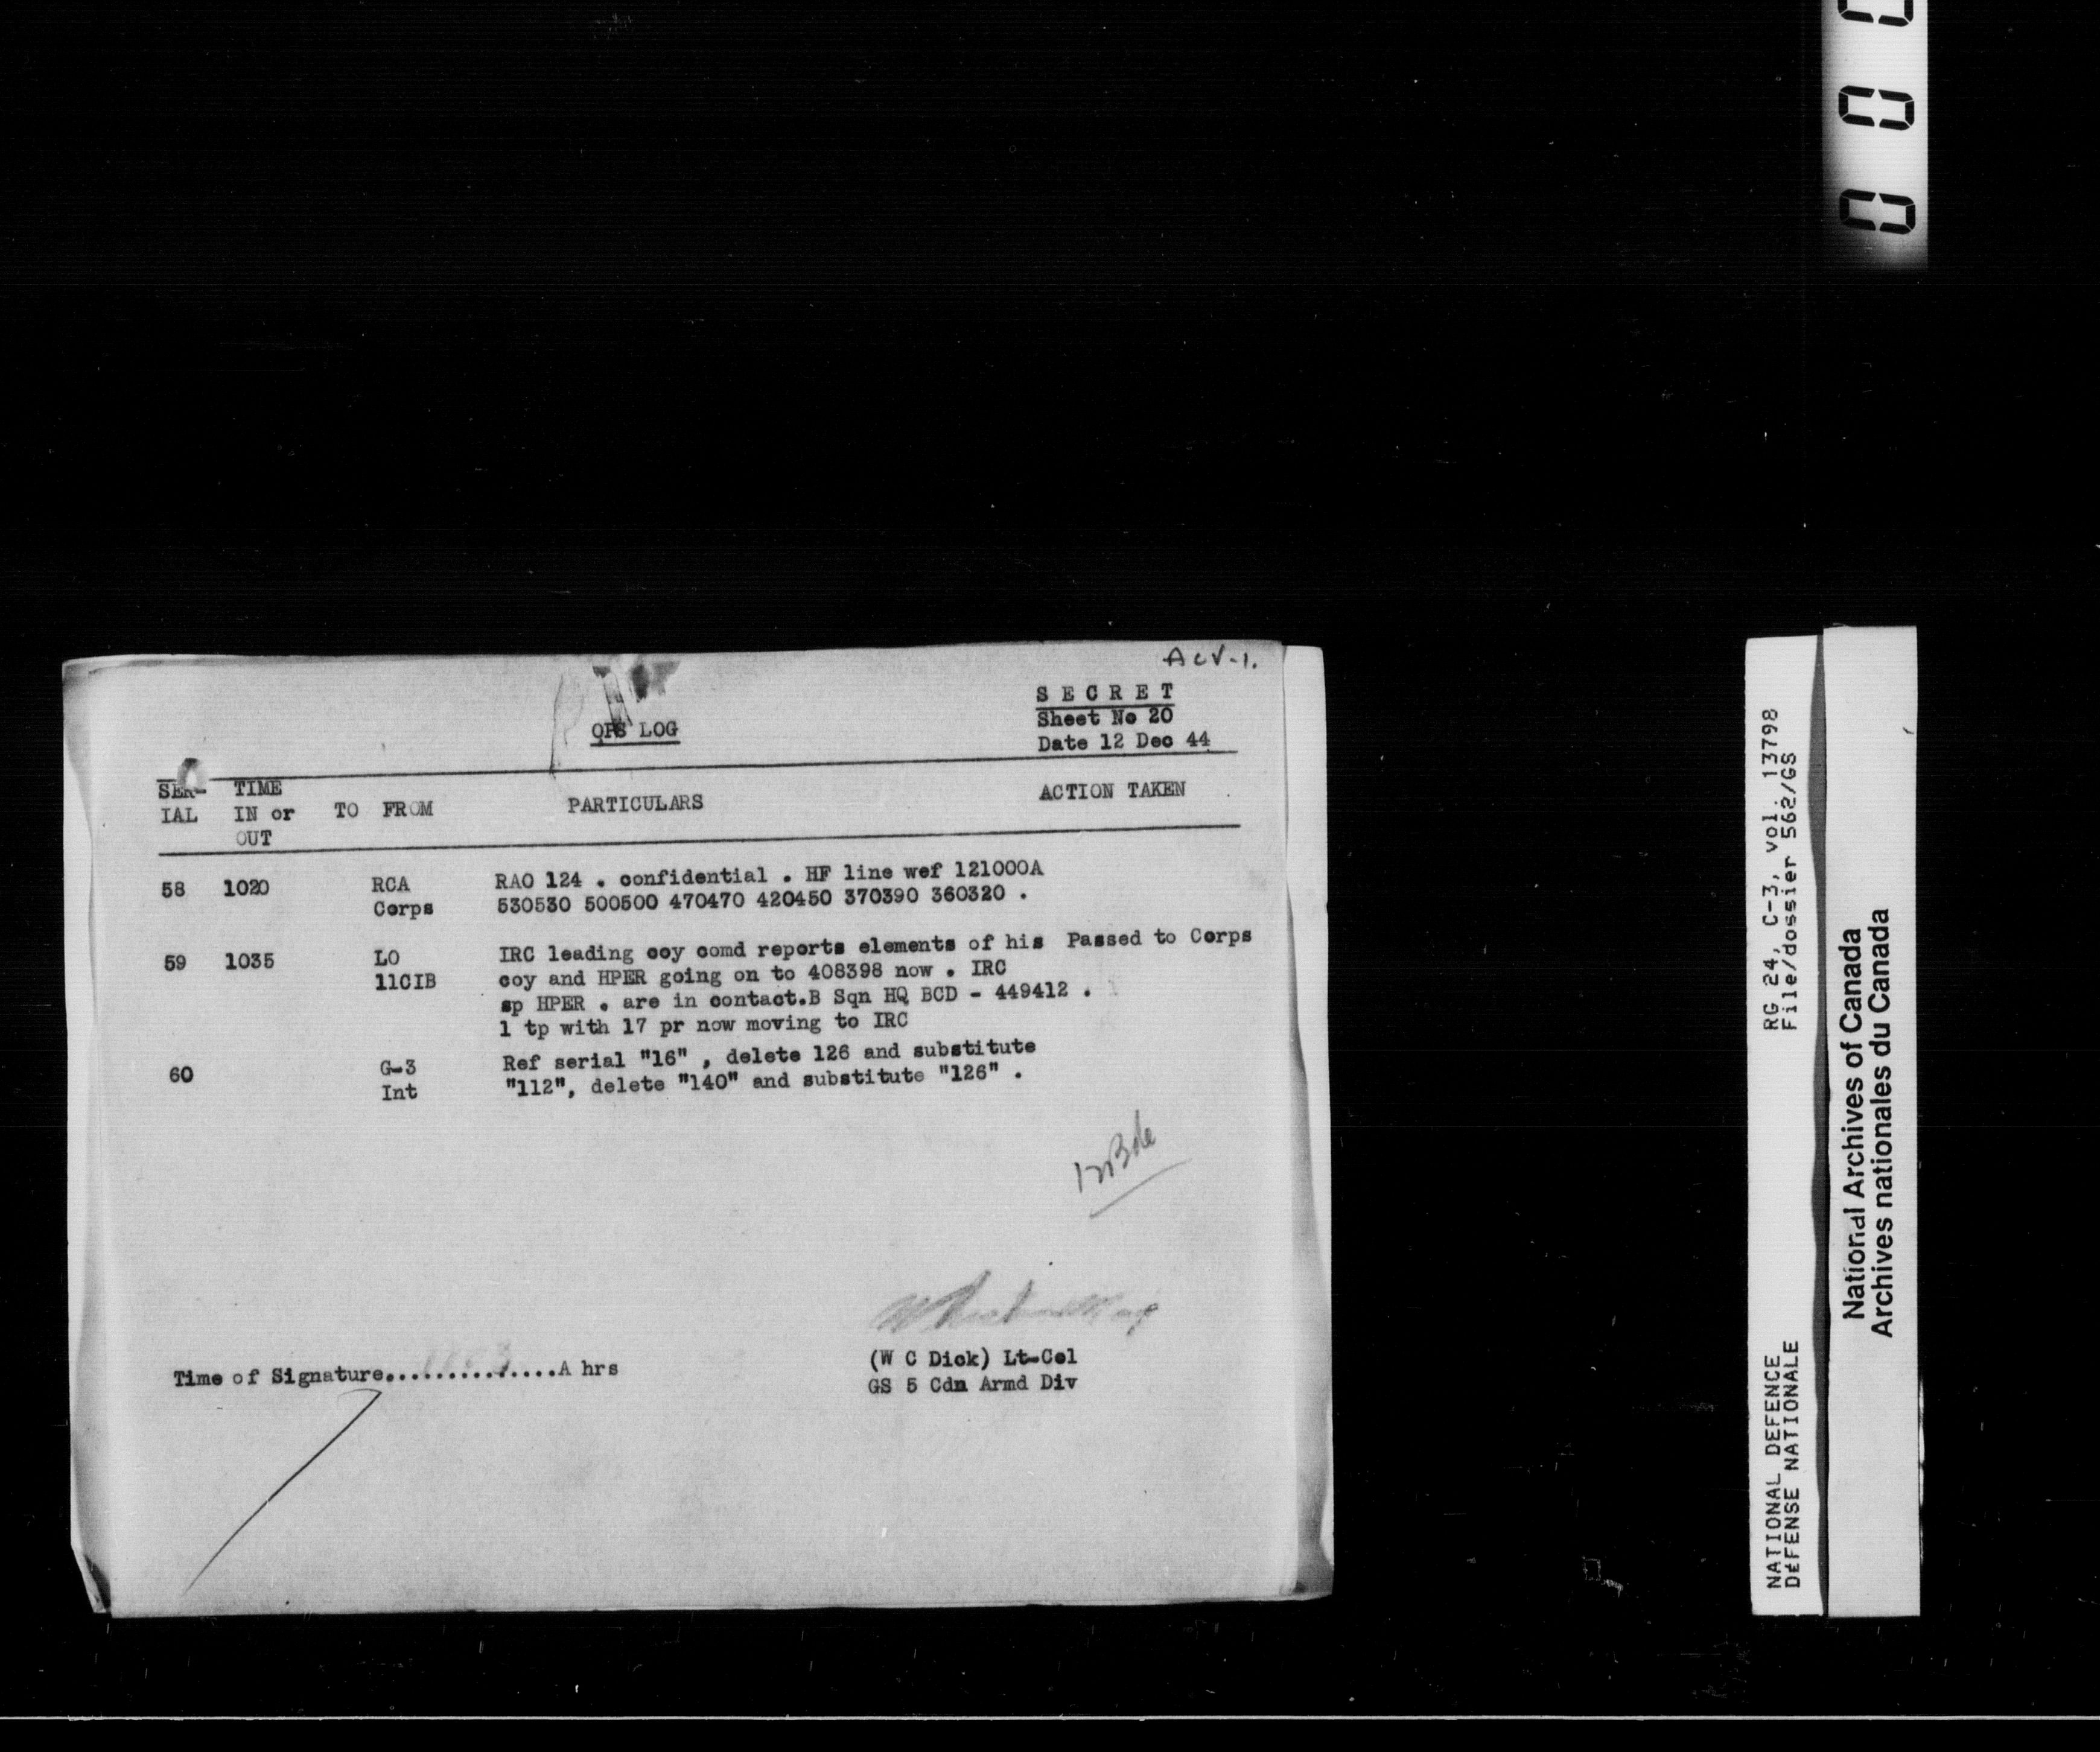 ACV-1.
S E C R E T
OPS LOG
Sheet No 20
Date 12 Dec 44
SER- TIME
IAL IN or TO FROM PARTICULARS ACTION TAKEN
OUT
58 1020 RCA RAO 124 . confidential . HF line wef 121000A
Corps 530530 500500 470470 420450 370390 360320 .
59 1035 LO IRC leading coy comd reports elements of his Passed to Corps
11CIB coy and HPER going on to 408398 now . IRC
sp HPER . are in contact.B Sqn HQ BCD - 449412 .
1 tp with 17 pr now moving to IRC
60 G-3 Ref serial "16" , delete 126 and substitute
Int "112", delete "140" and substitute "126" .
12 Bde
Time of Signature...............A hrs
(W C Dick) Lt-Col
GS 5 Cdn Armd Div
000
RG 24, C-3, vol. 13798
File/dossier 562/GS
NATIONAL DEFENCE
DéFENSE NATIONALE
National Archives of Canada
Archives nationales du Canada